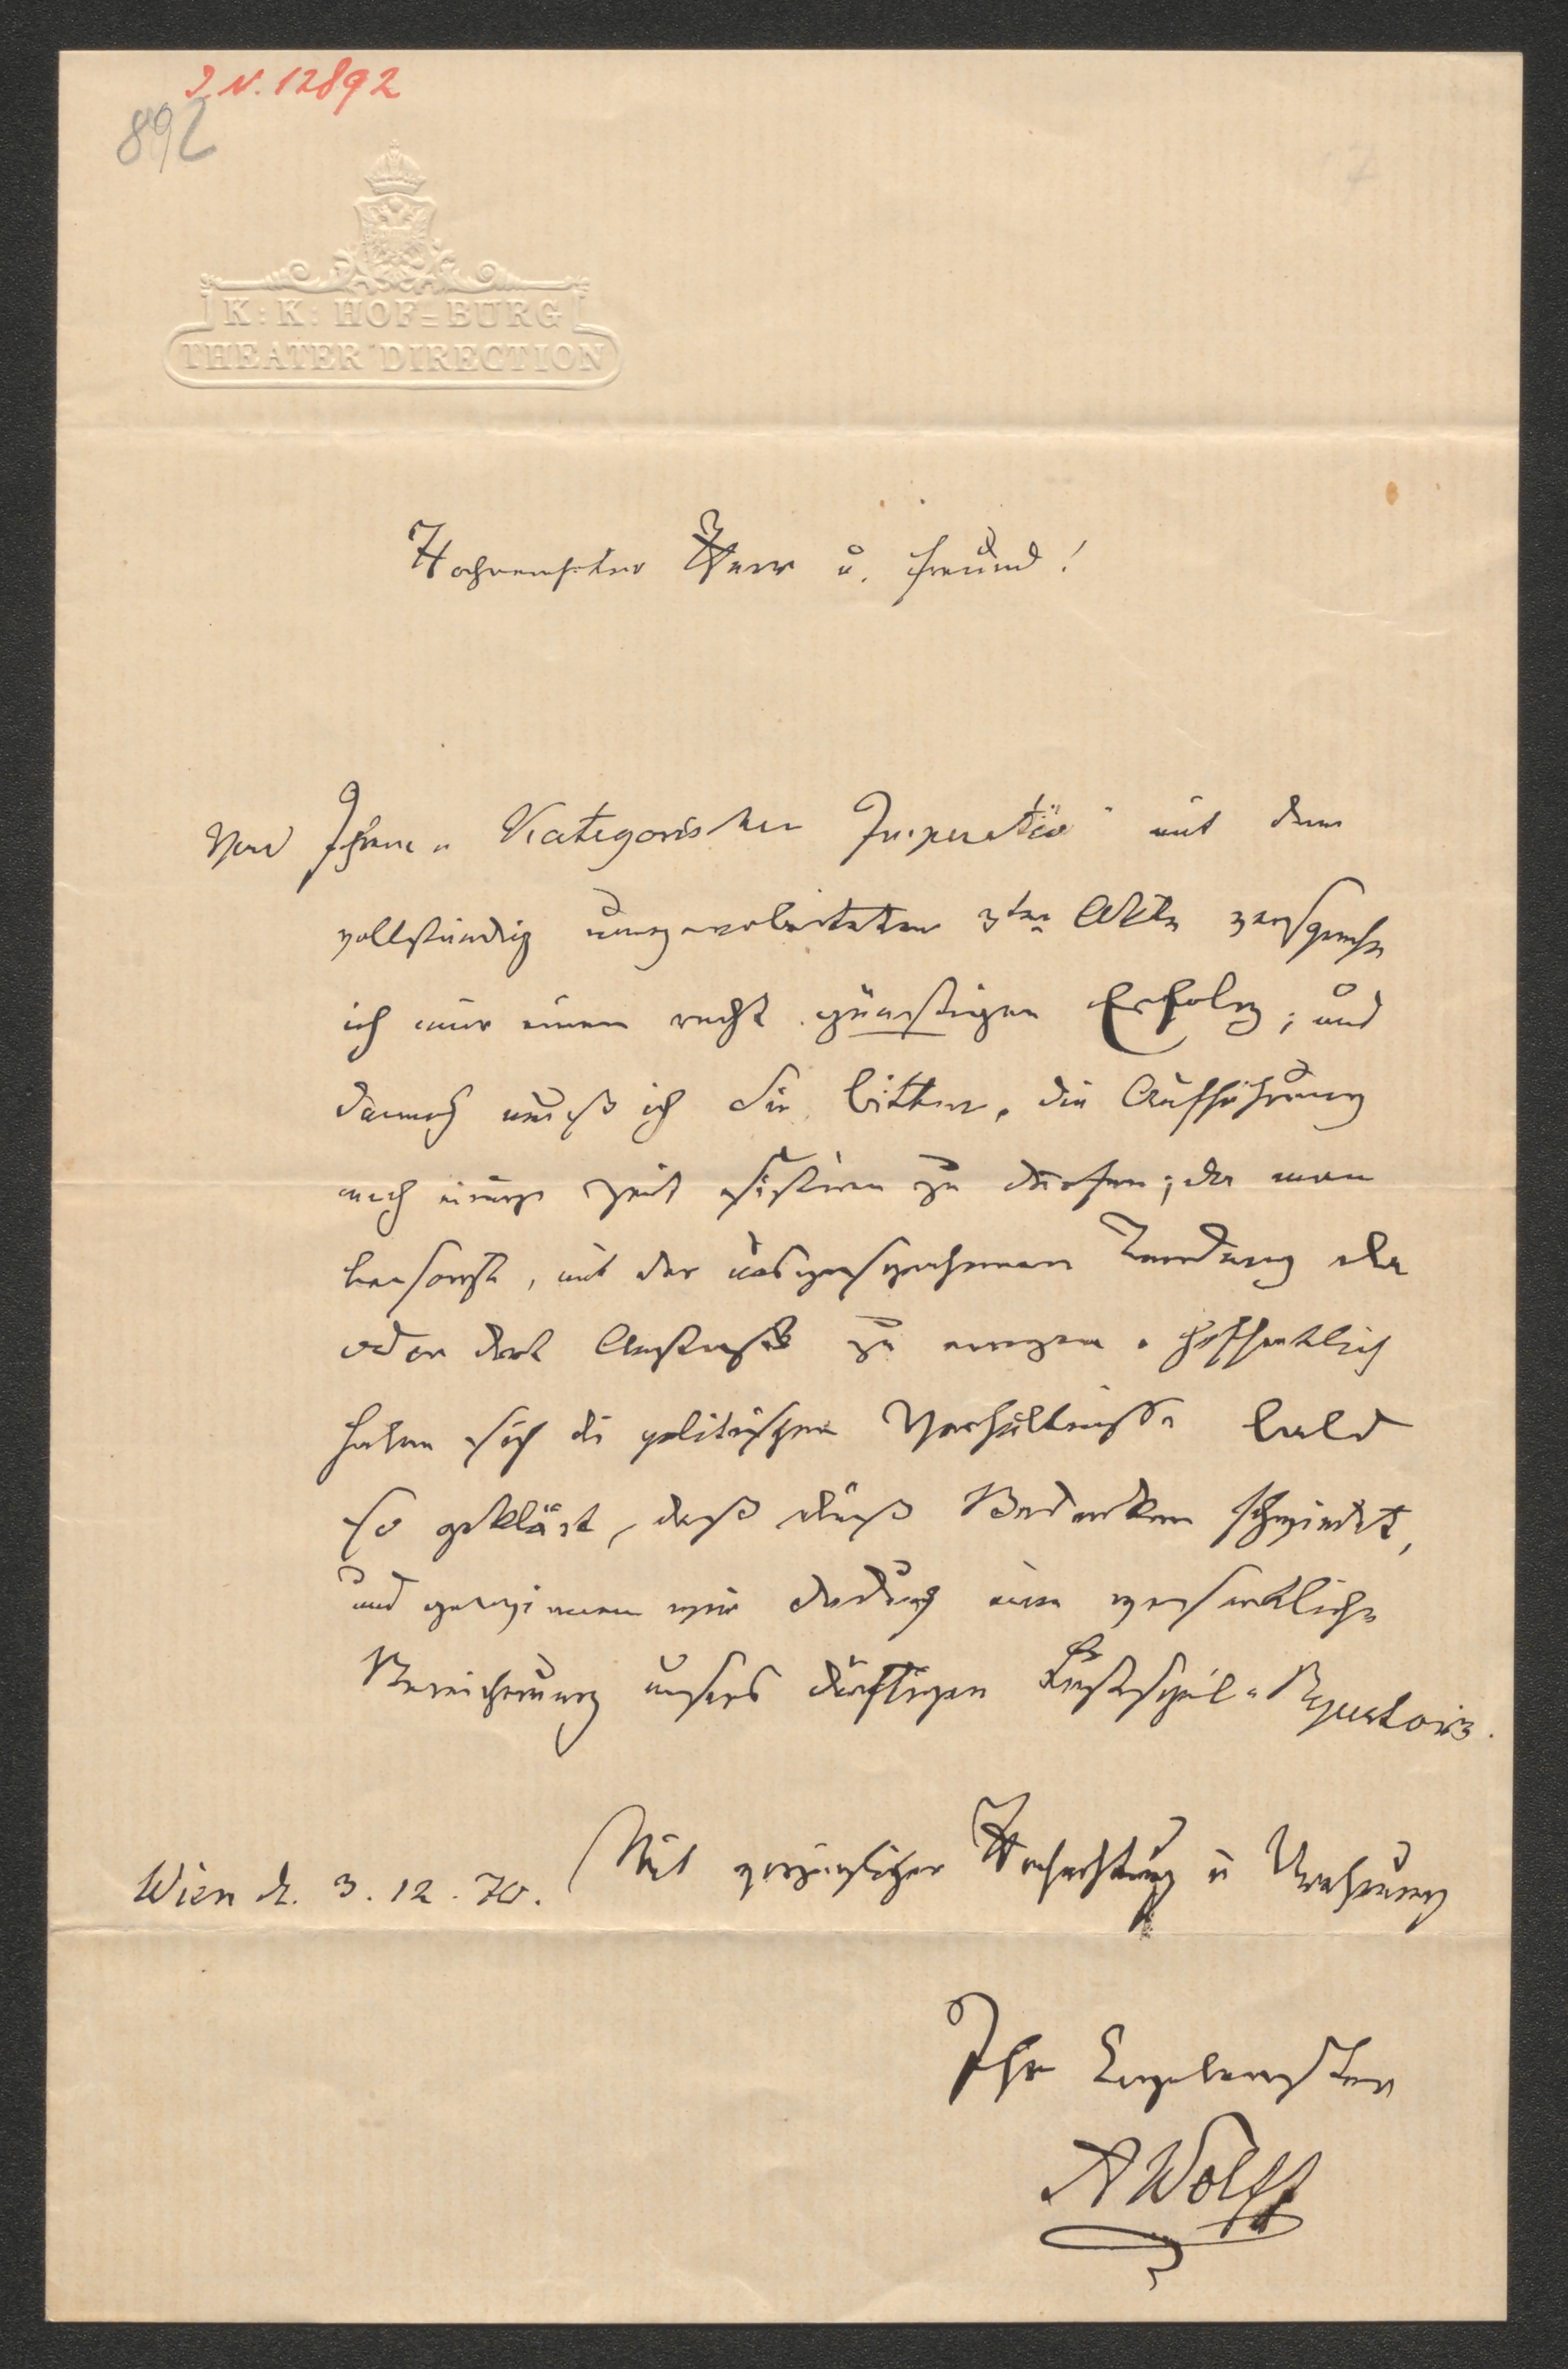 I. N. 12892
892
7
K: K: HOF=BURG
THEATER DIRECTION
Hochverehrter Herr u. Freund!
Von Ihrem „Kategorischen Imperativ" mit dem
vollständig umgearbeiteten 3ten Akte verspreche
ich mir einen recht günstigen Erfolg; und
dennoch muß ich Sie bitten, die Aufführung
noch einige Zeit sistiren zu dürfen; da man
besorgt, mit der ausgesprochenen Tendenz da
oder dort Anstoß zu erregen. Hoffentlich
haben sich die politischen Verhältnisse bald
so geklärt, daß dieß Bedenken schwindet,
und gewinnen wir dadurch eine wesentliche
Bereicherung unsers dürftigen Lustspiel-Repertoirs.
Wien d. 3. 12. 70. Mit vorzüglicher Hochachtung u Verehrung
Ihr Ergebenster
A Wolff